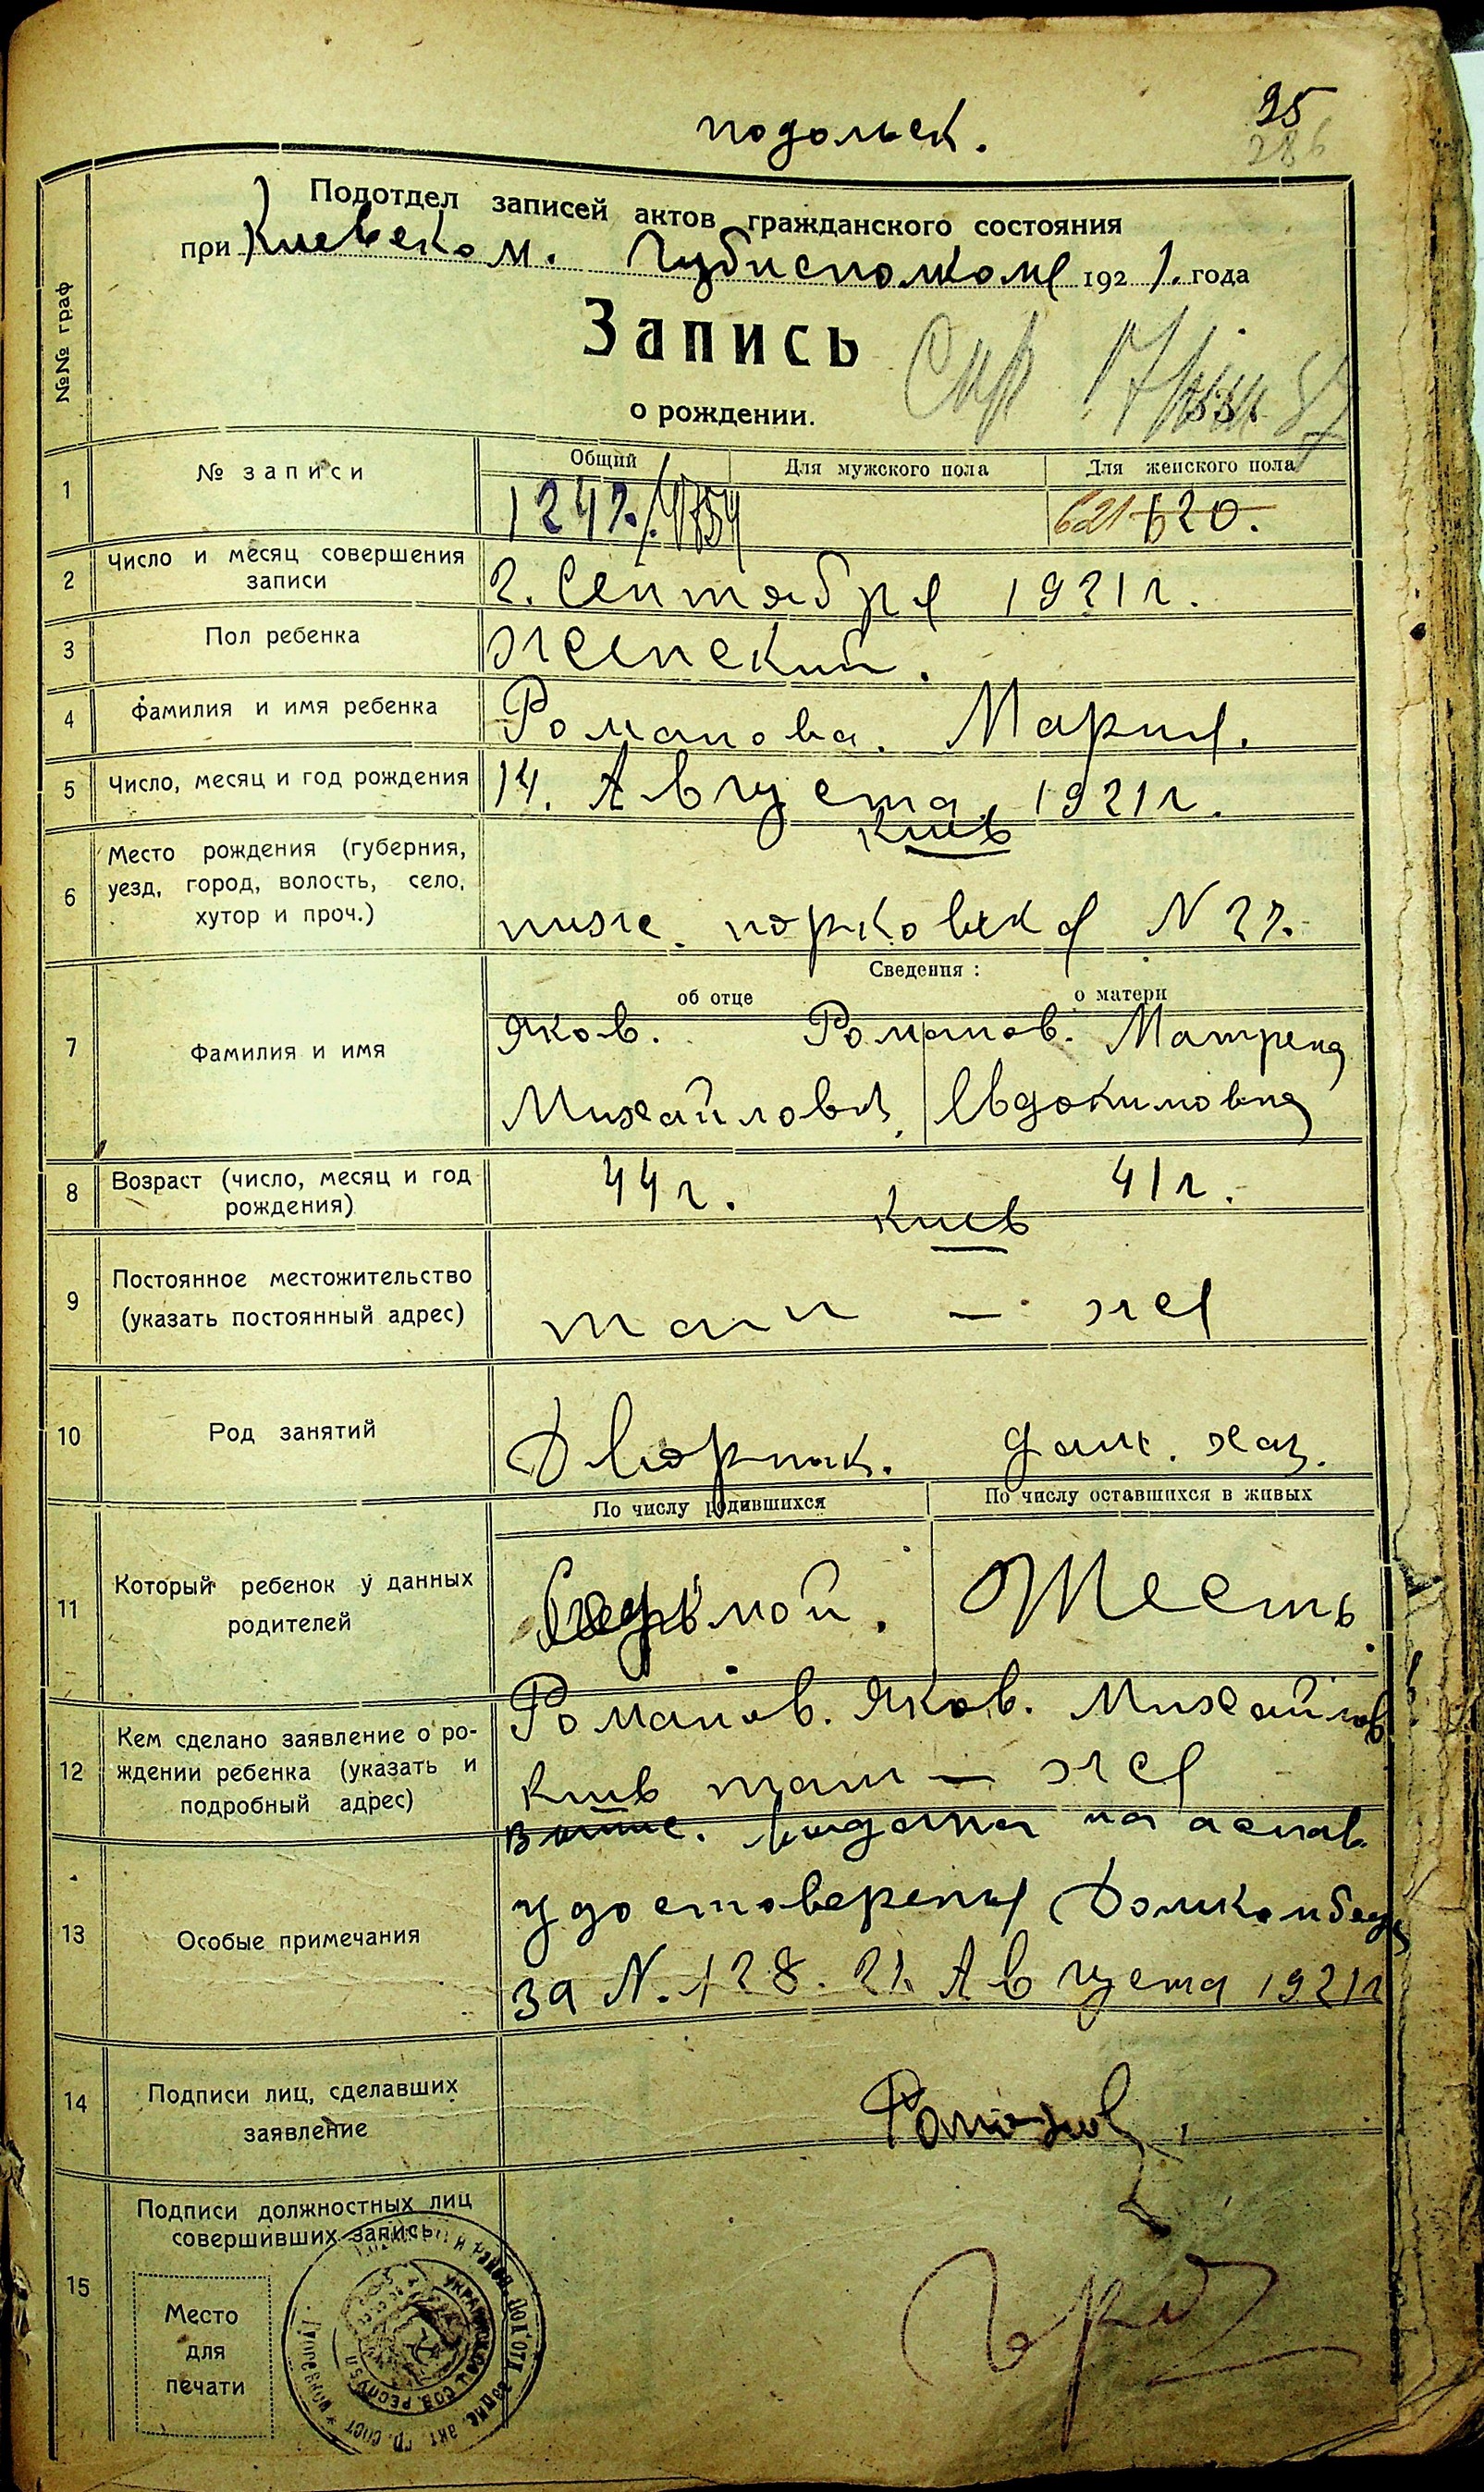 подольск.
95
286
Подотдел записей актов гражданского состояния
при Киевском. Губисполкоме 1921. года
№№ граф
Запись
о рождении.
1 № записи
Общий Для мужского пола Для женского пола
1247. 621 620.
2 Число и месяц совершения
записи
2. Сентября 1921 г.
3 Пол ребенка женский.
4 Фамилия и имя ребенка Романова. Мария.
5 Число, месяц и год рождения 14. Августа, 1921 г.
Киев
6 Место рождения (губерния,
уезд, город, волость, село,
хутор и проч.)
ниже. юрковская N 27.
Сведения:
об отце о матери
7 Фамилия и имя
Яков. Романов. Матрена
Михайлович, Евдокимовна
8 Возраст (число, месяц и год
рождения)
44 г. 41 г.
Киев
9 Постоянное местожительство
(указать постоянный адрес)
там — же
10 Род занятий Дворник. дом. хоз.
По числу родившихся По числу оставшихся в живых
11 Который ребенок у данных
родителей
Седьмой. Шесть.
12 Кем сделано заявление о ро-
ждении ребенка (указать и
подробный адрес)
Романов. Яков. Михайлов
Киев там — же
13 Особые примечания
выпис. выдана на основ.
удостоверения Домкомбеда
за N. 128. 21. Августа 1921 г
14 Подписи лиц, сделавших
заявление
Романов
15 Подписи должностных лиц
совершивших запись
Место
для
печати
УКРАИНСКАЯ СОЦ. СОВ. РЕСПУБ